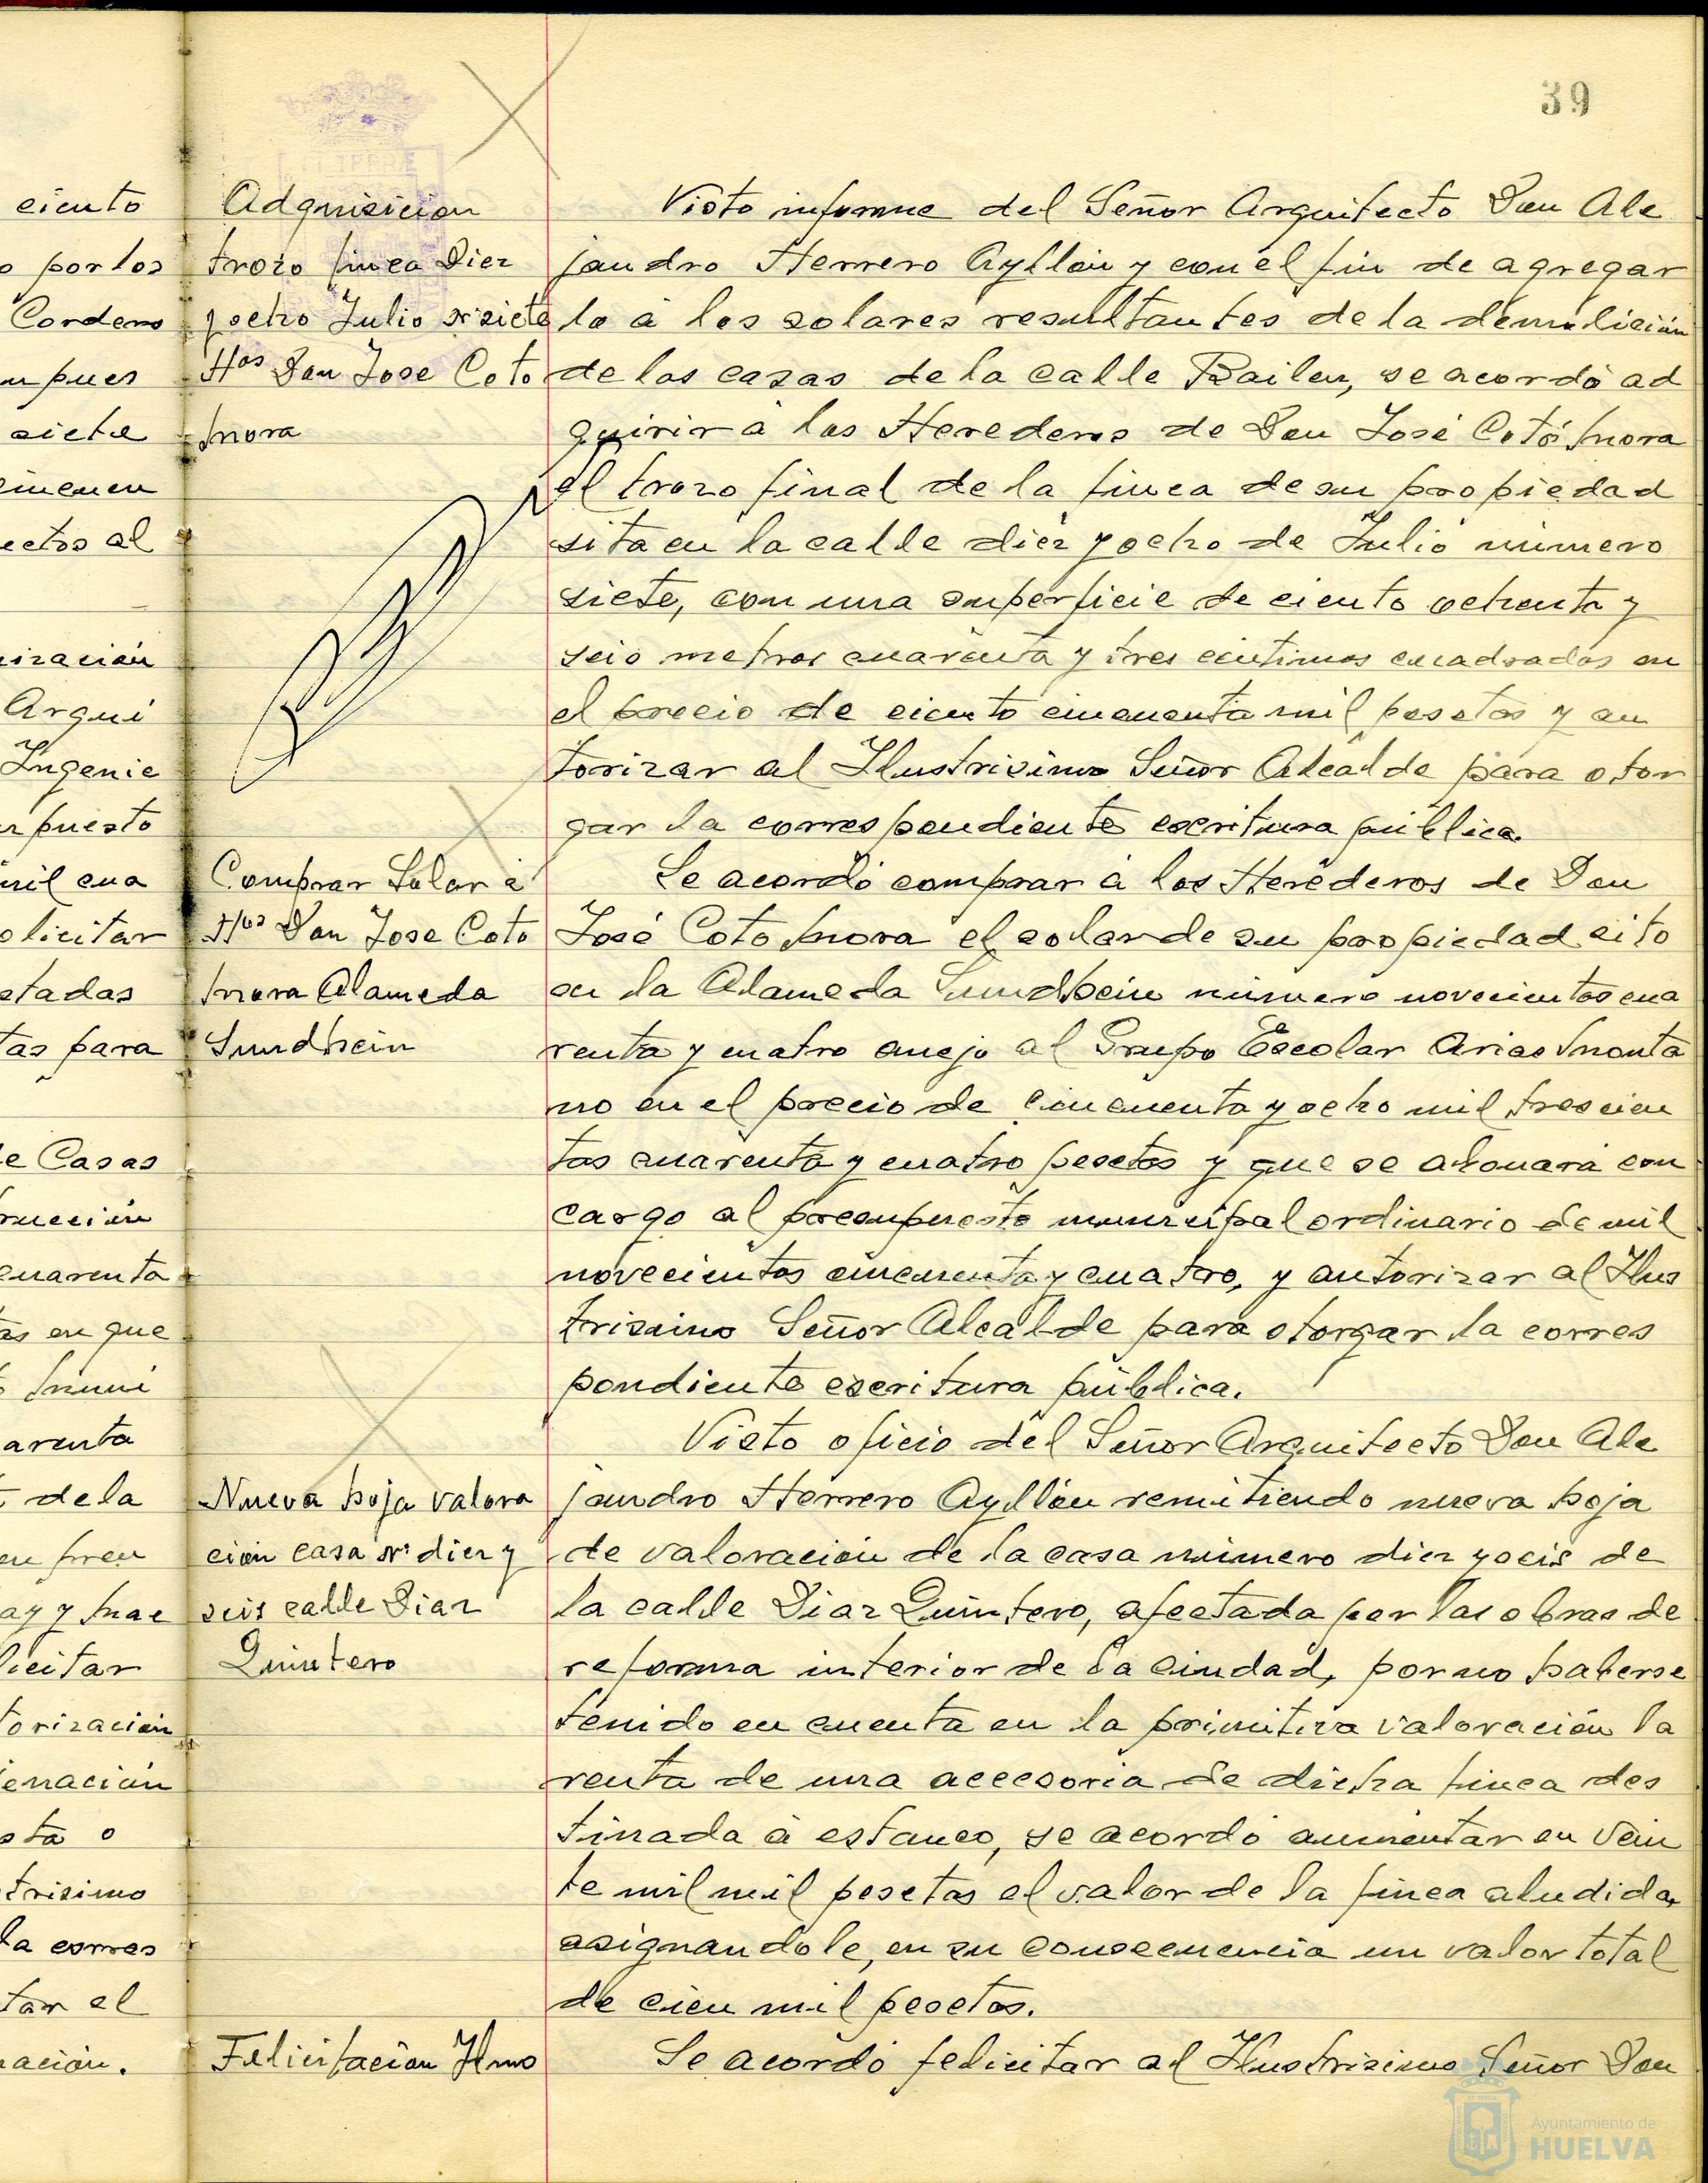 39
ciento
o por los
Cordero
n pues
siete
cincuen
ectos al
nización
Arqui
Ingenie
puesto
mil cua
olicitar
etadas
tas para
e Casas
rucción
cuarenta
as en que
Muni
arenta
de la
en pren
ay y Mae
licitar
torización
enación
sta o
trisimo
la corres
tar el
ación.
Adquisicion
trozo finca Diez
y ocho Julio nº siete
Hos Don Jose Coto
Mora
Comprar Solar á
Hos Don Jose Coto
Mora Alameda
Sundhein
Nueva hoja valora
ción casa nº diez y
seis calle Diaz
Quintero
Felicitacion Ilmo
Visto informe del Señor Arquitecto Don Ale
jandro Herrero Ayllón y con el fin de agregar
lo a los solares resultantes de la demolición
de las casas de la calle Bailen, se acordó ad
quirir a los Herederos de Don José Cotó Mora
el trozo final de la finca de su propiedad
sita en la calle diez y ocho de Julio número
siete, con una superficie de ciento ochenta y
seis metros cuarenta y tres centimos cuadrados en
el precio de ciento cincuenta mil pesetas y au
torizar al Ilustrisimo Señor Alcalde para otor
gar la correspondiente escritura pública.
Se acordó comprar a los Herederos de Don
José Coto Mora el solar de su propiedad sito
en la Alameda Sundhein número novecientos cua
renta y cuatro anejo al Grupo Escolar Arias Monta
no en el precio de cincuenta y ocho mil trescien
tas cuarenta y cuatro pesetas y que se abonará con
cargo al presupuesto municipal ordinario de mil
novecientos cincuenta y cuatro, y autorizar al Ilus
trisimo Señor Alcalde para otorgar la corres
pondiente escritura pública.
Visto oficio del Señor Arquitecto Don Ale
jandro Herrero Ayllón remitiendo nueva hoja
de valoración de la casa número diez y seis de
la calle Diaz Quintero, afectada por las obras de
reforma interior de la ciudad, por no haberse
tenido en cuenta en la primitiva valoración la
renta de una accesoria de dicha finca des
tinada a estanco, se acordó aumentar en vein
te mil mil pesetas el valor de la finca aludida,
asignandole, en su consecuencia un valor total
de cien mil pesetas.
Se acordó felicitar al Ilustrisimo Señor Don
Ayuntamiento de
HUELVA